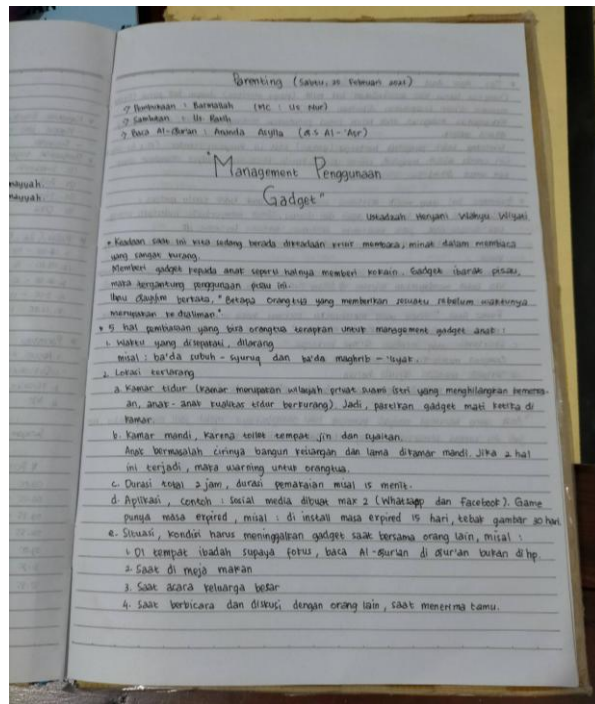 mayyah.
mayyah.
Parenting (Sabtu, 20 Februari 2021)
→ Pembukaan : Barmallah (MC : Us Nur)
→ Sambutan : Us. Ranti
→ Baca Al-Qur'an : Ananda Asyila (Q.S Al-'Asr)
"Management Penggunaan
Gadget"
Ustadzah Heryani Wahyu Wiyati
* Keadaan saat ini kita sedang berada dikeadaan krisir membaca, minat dalam membaca
yang sangat kurang.
Memberi gadget kepada anak seperti halnya memberi kokain. Gadget ibarat pisau,
maka tergantung penggunaan pisau ini.
Ibnu Qayyim berkata, "Betapa orangtua yang memberikan sesuatu sebelum waktunya
merupakan kedzaliman."
* 5 hal pembiasaan yang bisa orangtua terapkan untuk management gadget anak :
1. Waktu yang disepakati, dilarang
misal : ba'da subuh - syuruq dan ba'da maghrib - 'isyak.
2. Lokasi terlarang
a. Kamar tidur (kamar merupakan wilayah privat suami istri yang menghilangkan kemesra-
an, anak - anak kualitas tidur berkurang). Jadi, pastikan gadget mati ketika di
kamar.
b. Kamar mandi, karena toilet tempat jin dan syaitan.
Anak bermasalah cirinya bangun kesiangan dan lama dikamar mandi. Jika 2 hal
ini terjadi, maka warning untuk orangtua.
c. Durasi total 2 jam, durasi pemakaian misal 15 menit.
d. Aplikasi, contoh : social media dibuat max 2 (Whatsapp dan Facebook). Game
punya masa expired, misal : di install masa expired 15 hari, tebak gambar 30 hari
e. Situasi, kondisi harus meninggalkan gadget saat bersama orang lain, misal :
1. Di tempat ibadah supaya fokus, baca Al-Qur'an di Qur'an bukan di hp.
2. Saat di meja makan
3. Saat acara keluarga besar
4. Saat berbicara dan diskusi dengan orang lain, saat menerima tamu.